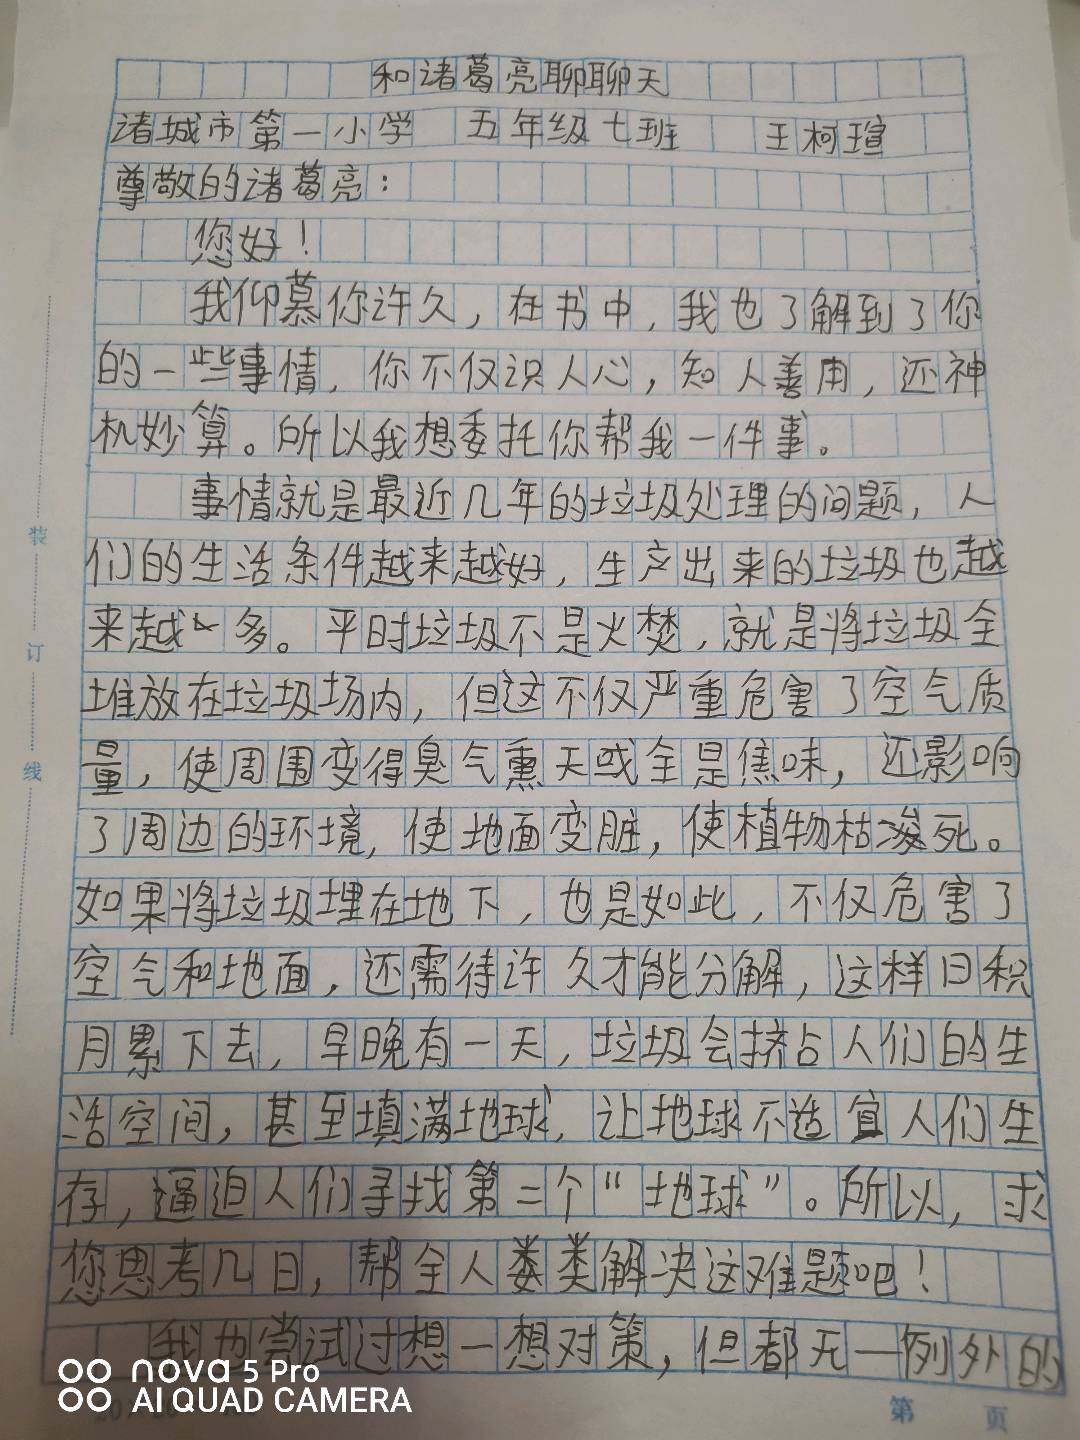 和诸葛亮聊聊天
诸城市第一小学 五年级七班 王柯瑄
尊敬的诸葛亮：
您好！
我仰慕你许久，在书中，我也了解到了你
的一些事情，你不仅识人心，知人善用，还神
机妙算。所以我想委托你帮我一件事。
事情就是最近几年的垃圾处理的问题，人
们的生活条件越来越好，生产出来的垃圾也越
来越多。平时垃圾不是火焚，就是将垃圾全
堆放在垃圾场内，但这不仅严重危害了空气质
量，使周围变得臭气熏天或全是焦味，还影响
了周边的环境，使地面变脏，使植物枯 死。
如果将垃圾埋在地下，也是如此，不仅危害了
空气和地面，还需待许久才能分解，这样日积
月累下去，早晚有一天，垃圾会挤占人们的生
活空间，甚至填满地球，让地球不适宜人们生
存，逼迫人们寻找第二个“地球”。所以，求
您思考几日，帮全人类解决这难题吧！
我也尝试过想一想对策，但都无一例外的
装
订
线
第 页
nova 5 Pro
AI QUAD CAMERA